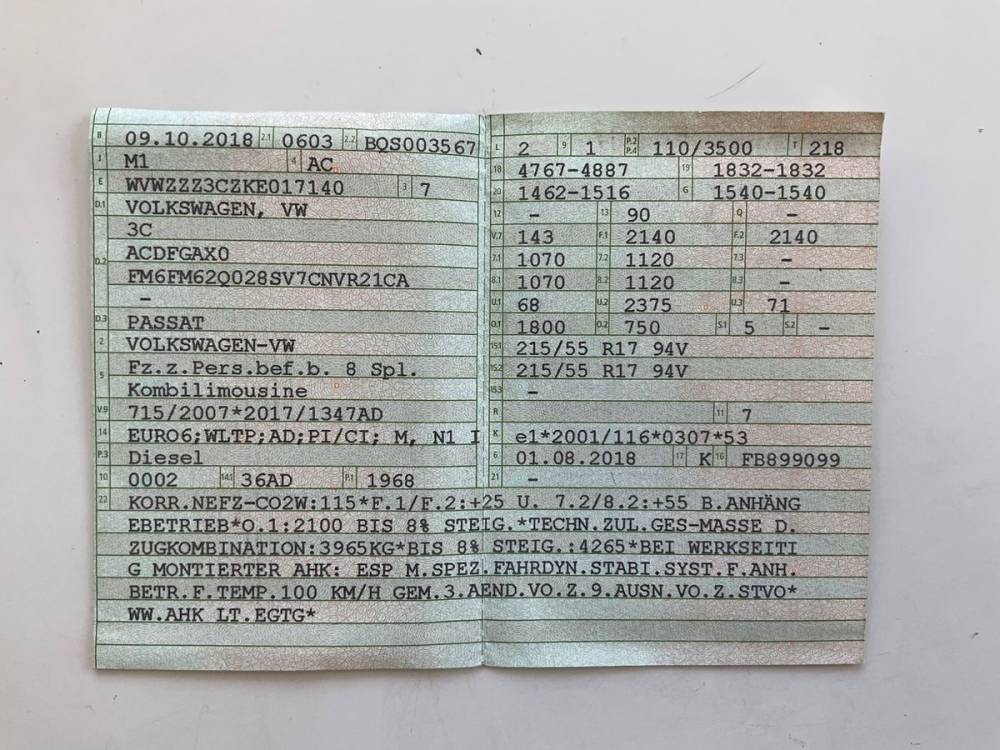 B 09.10.2018 2.1 0603 2.2 BQS003567
J M1 4 AC
E WVWZZZ3CZKE017140 3 7
D.1 VOLKSWAGEN, VW
3C
D.2 ACDFGAX0
FM6FM62Q028SV7CNVR21CA
–
D.3 PASSAT
2 VOLKSWAGEN-VW
5 Fz.z.Pers.bef.b. 8 Spl.
Kombilimousine
V.9 715/2007*2017/1347AD
14 EURO6;WLTP;AD;PI/CI; M, N1 I
P.3 Diesel
10 0002 14.1 36AD P.1 1968
L 2 9 1 P.2 P.4 110/3500 T 218
18 4767-4887 19 1832-1832
20 1462-1516 G 1540-1540
12 – 13 90 Q –
V.7 143 F.1 2140 F.2 2140
7.1 1070 7.2 1120 7.3 –
8.1 1070 8.2 1120 8.3 –
U.1 68 U.2 2375 U.3 71
O.1 1800 O.2 750 S.1 5 S.2 –
15.1 215/55 R17 94V
15.2 215/55 R17 94V
15.3 –
R 11 7
K e1*2001/116*0307*53
6 01.08.2018 17 K 16 FB899099
21 –
22 KORR.NEFZ-CO2W:115*F.1/F.2:+25 U. 7.2/8.2:+55 B.ANHÄNG
EBETRIEB*O.1:2100 BIS 8% STEIG.*TECHN.ZUL.GES-MASSE D.
ZUGKOMBINATION:3965KG*BIS 8% STEIG.:4265*BEI WERKSEITI
G MONTIERTER AHK: ESP M.SPEZ.FAHRDYN.STABI.SYST.F.ANH.
BETR.F.TEMP.100 KM/H GEM.3.AEND.VO.Z.9.AUSN.VO.Z.STVO*
WW.AHK LT.EGTG*